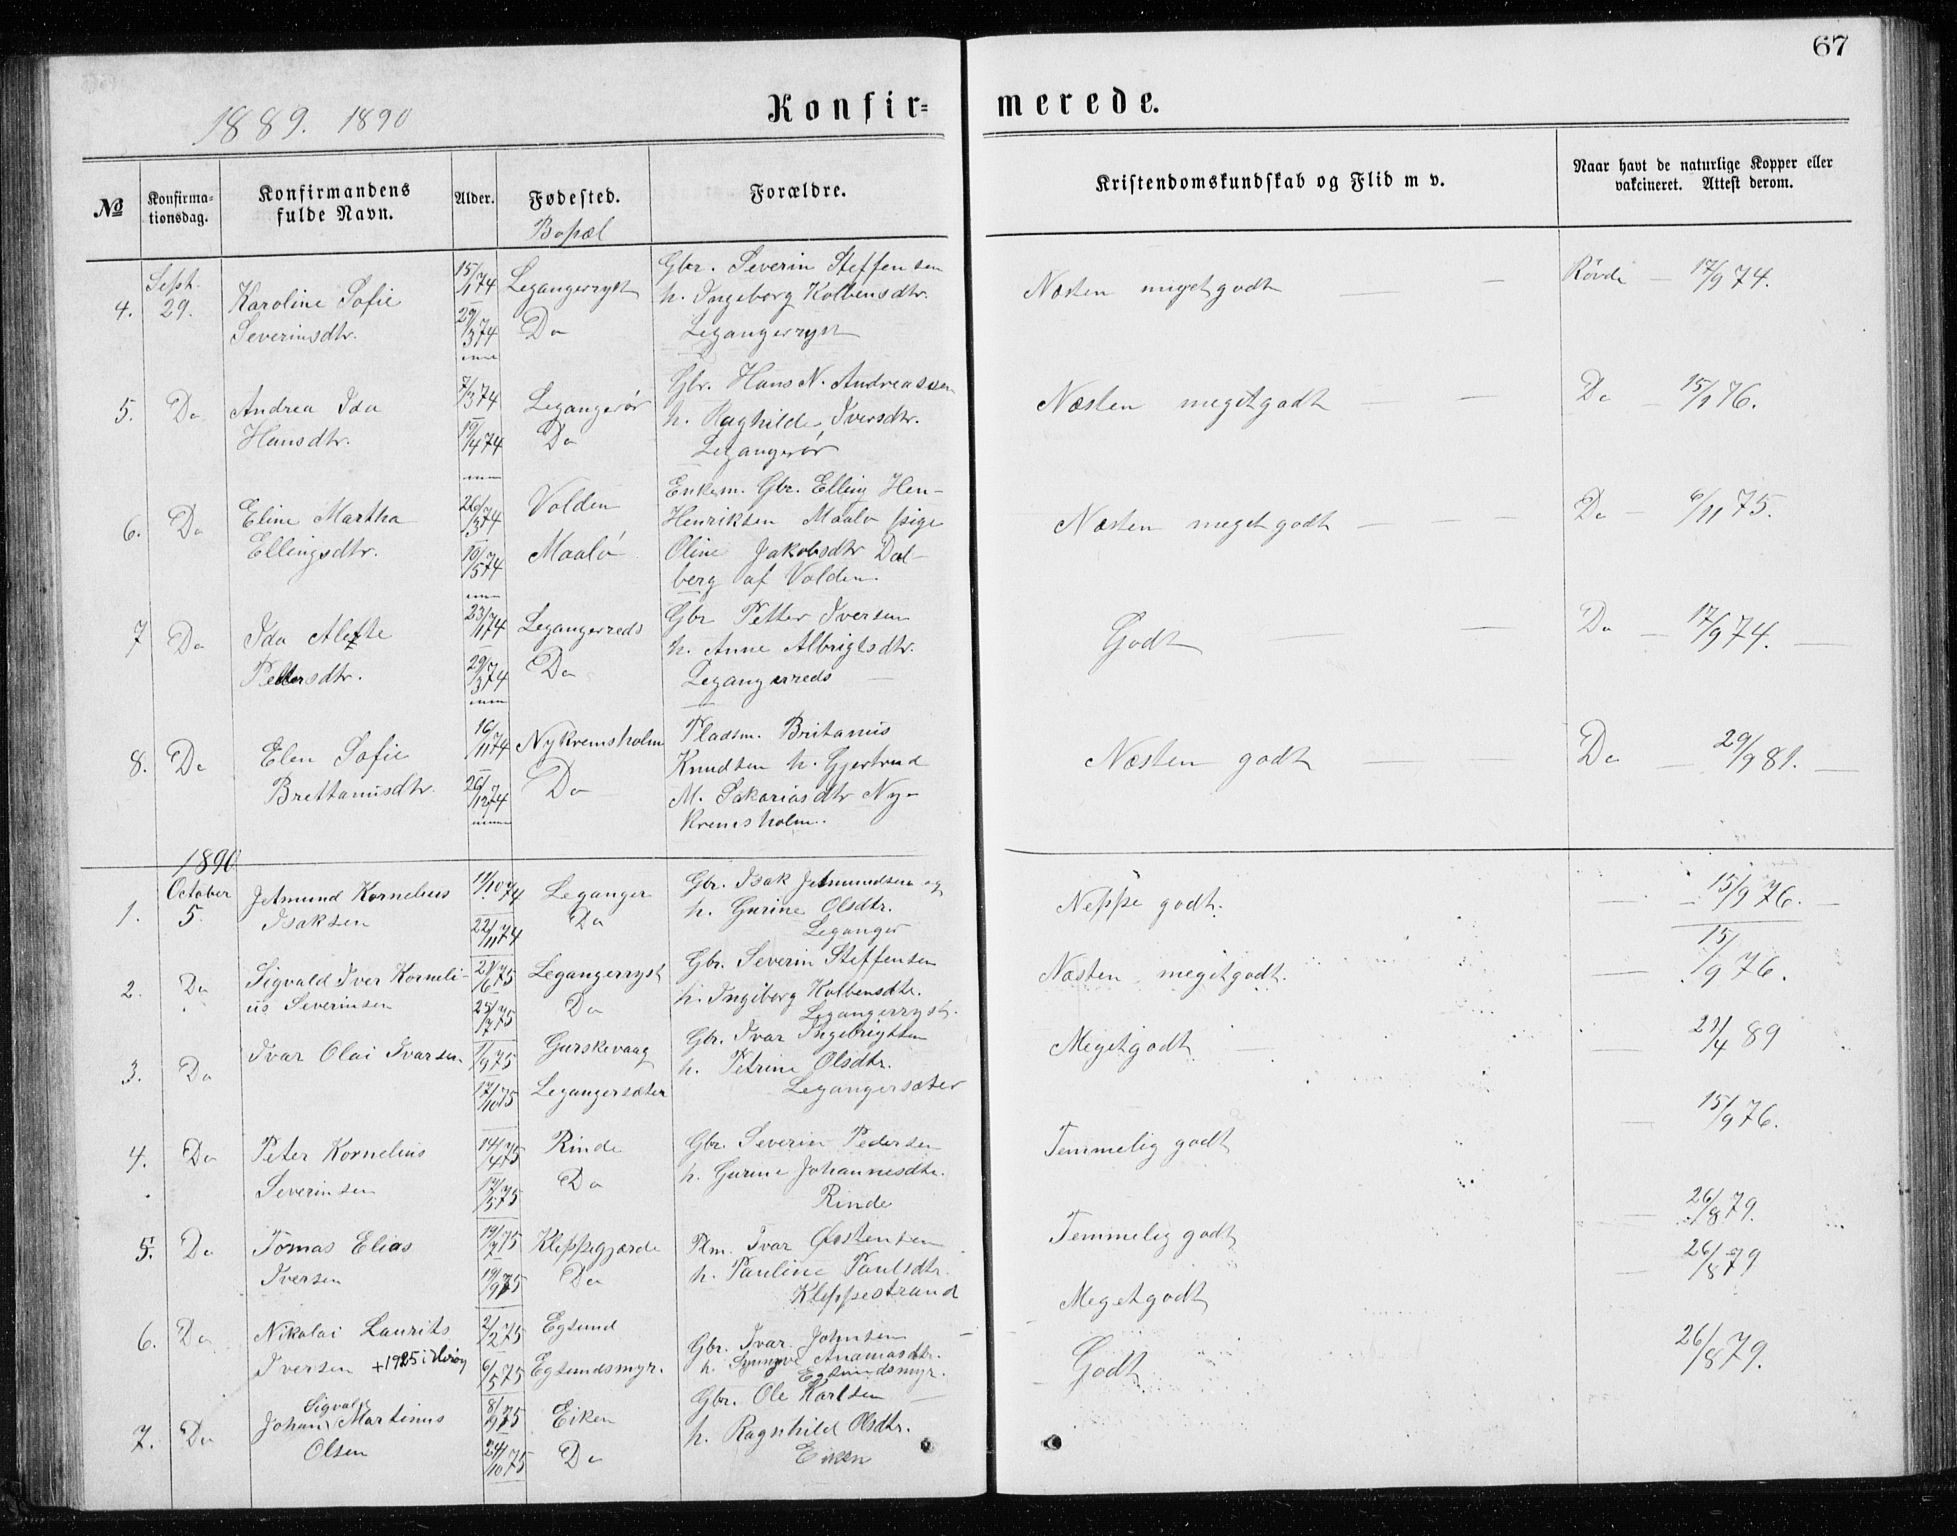 67
1889. 1890
Konfir= merede.
№ Konfirma-tionsdag. Konfirmandens fulde Navn. Alder. Fødested. Forældre. Kristendomskundskab og Flid m v. Naar havt de naturlige Kopper eller vakcineret. Attest derom.
Bopæl
Sept. 15/1 74 Legangerryst Gbr. Severin Steffensen
4. 29. Karoline Sofie h. Ingeborg Kolbensdtr. Næsten megetgodt — — Røvde — 17/9 74.
Severinsdtr. 29/3 74 Do Legangerryst
5. Do Andrea Ida 7/3 74 Legangerør Gbr. Hans N. Andreassen Næsten megetgodt — — Do — 15/9 76.
Hansdtr. 19/4 74 Do h. Raghilde Iversdtr.
Legangerør
6. Do Eline Martha 26/3 74 Volden Enkem. Gbr. Elling Hen-
Ellingsdtr. 10/5 74 Maalø Henriksen Maalø pige Næsten meget godt — — — Do — 6/11 75.
Oline Jakobsdtr Dal-
berg af Volden.
7 Do Ida Alette 23/1 74 Legangerreds Gbr Petter Iversen Godt — — Do — 17/9 74. —
Pettersdtr. 29/3 74 Do h. Anne Albrigtsdtr.
Legangerreds —
8. Do Elen Sofie 16/11 74 Nykremsholm Pladsm. Britanus Næsten godt — — Do — 29/9 81. —
Brettanusdtr. 26/12 74 Do Knudsen h. Gjertrud
M. Sakariasdtr Ny-
kremsholm.
1890
October
1. 5. Jetmund Kornelius 11/10 74 Leganger Gbr. Isak Jetmundsen og Neppe godt. — 15/9 76. —
Isaksen 22/11 74 Do h. Gurine Olsdtr.
Leganger
2. Do Sigvald Iver Korneli- 21/6 75 Legangerryst Gbr. Severin Steffensen Næsten megetgodt. — 15/9 76.
us Severinsen 25/7 75 Do h. Ingeborg Kolbensdtr.
Legangerryst.
3. Do Ivar Olai Ivarsen 1/9 75 Gurskevaag Gbr. Ivar Ingebrigtsen Megetgodt — — 21/4 89
17/10 75 Legangersæter h. Petrine Olsdtr.
Legangersæter
4. Do Peter Kornelius 14/4 75 Rinde Gbr. Severin Pedersen Temmelig godt — 15/9 76.
Severinsen 17/5 75 Do h. Gurine Johannesdtr.
Rinde
5. Do Tomas Elias 19/7 75 Kleppegjærde Plm. Ivar Østensen Temmelig godt — 26/8 79.
Iversen 19/9 75 Do h. Pauline Paulsdtr.
Kleppestrand
6. Do Nikolai Laurits 2/2 75 Egsund Gbr. Ivar Johnsen — Megetgodt — 26/8 79
Iversen +1925 i Herøy 6/5 75 Egsundsmyr. h. Synnøve Ananiasdtr.
Egsundsmyr.
Sigvald Gbr. Ole Karlsen —
7. Do Johan Martinus 8/9 75 Eiken h. Ragnhild Olsdtr. Godt 26/8 79.
Olsen 24/10 75 Do Eiken